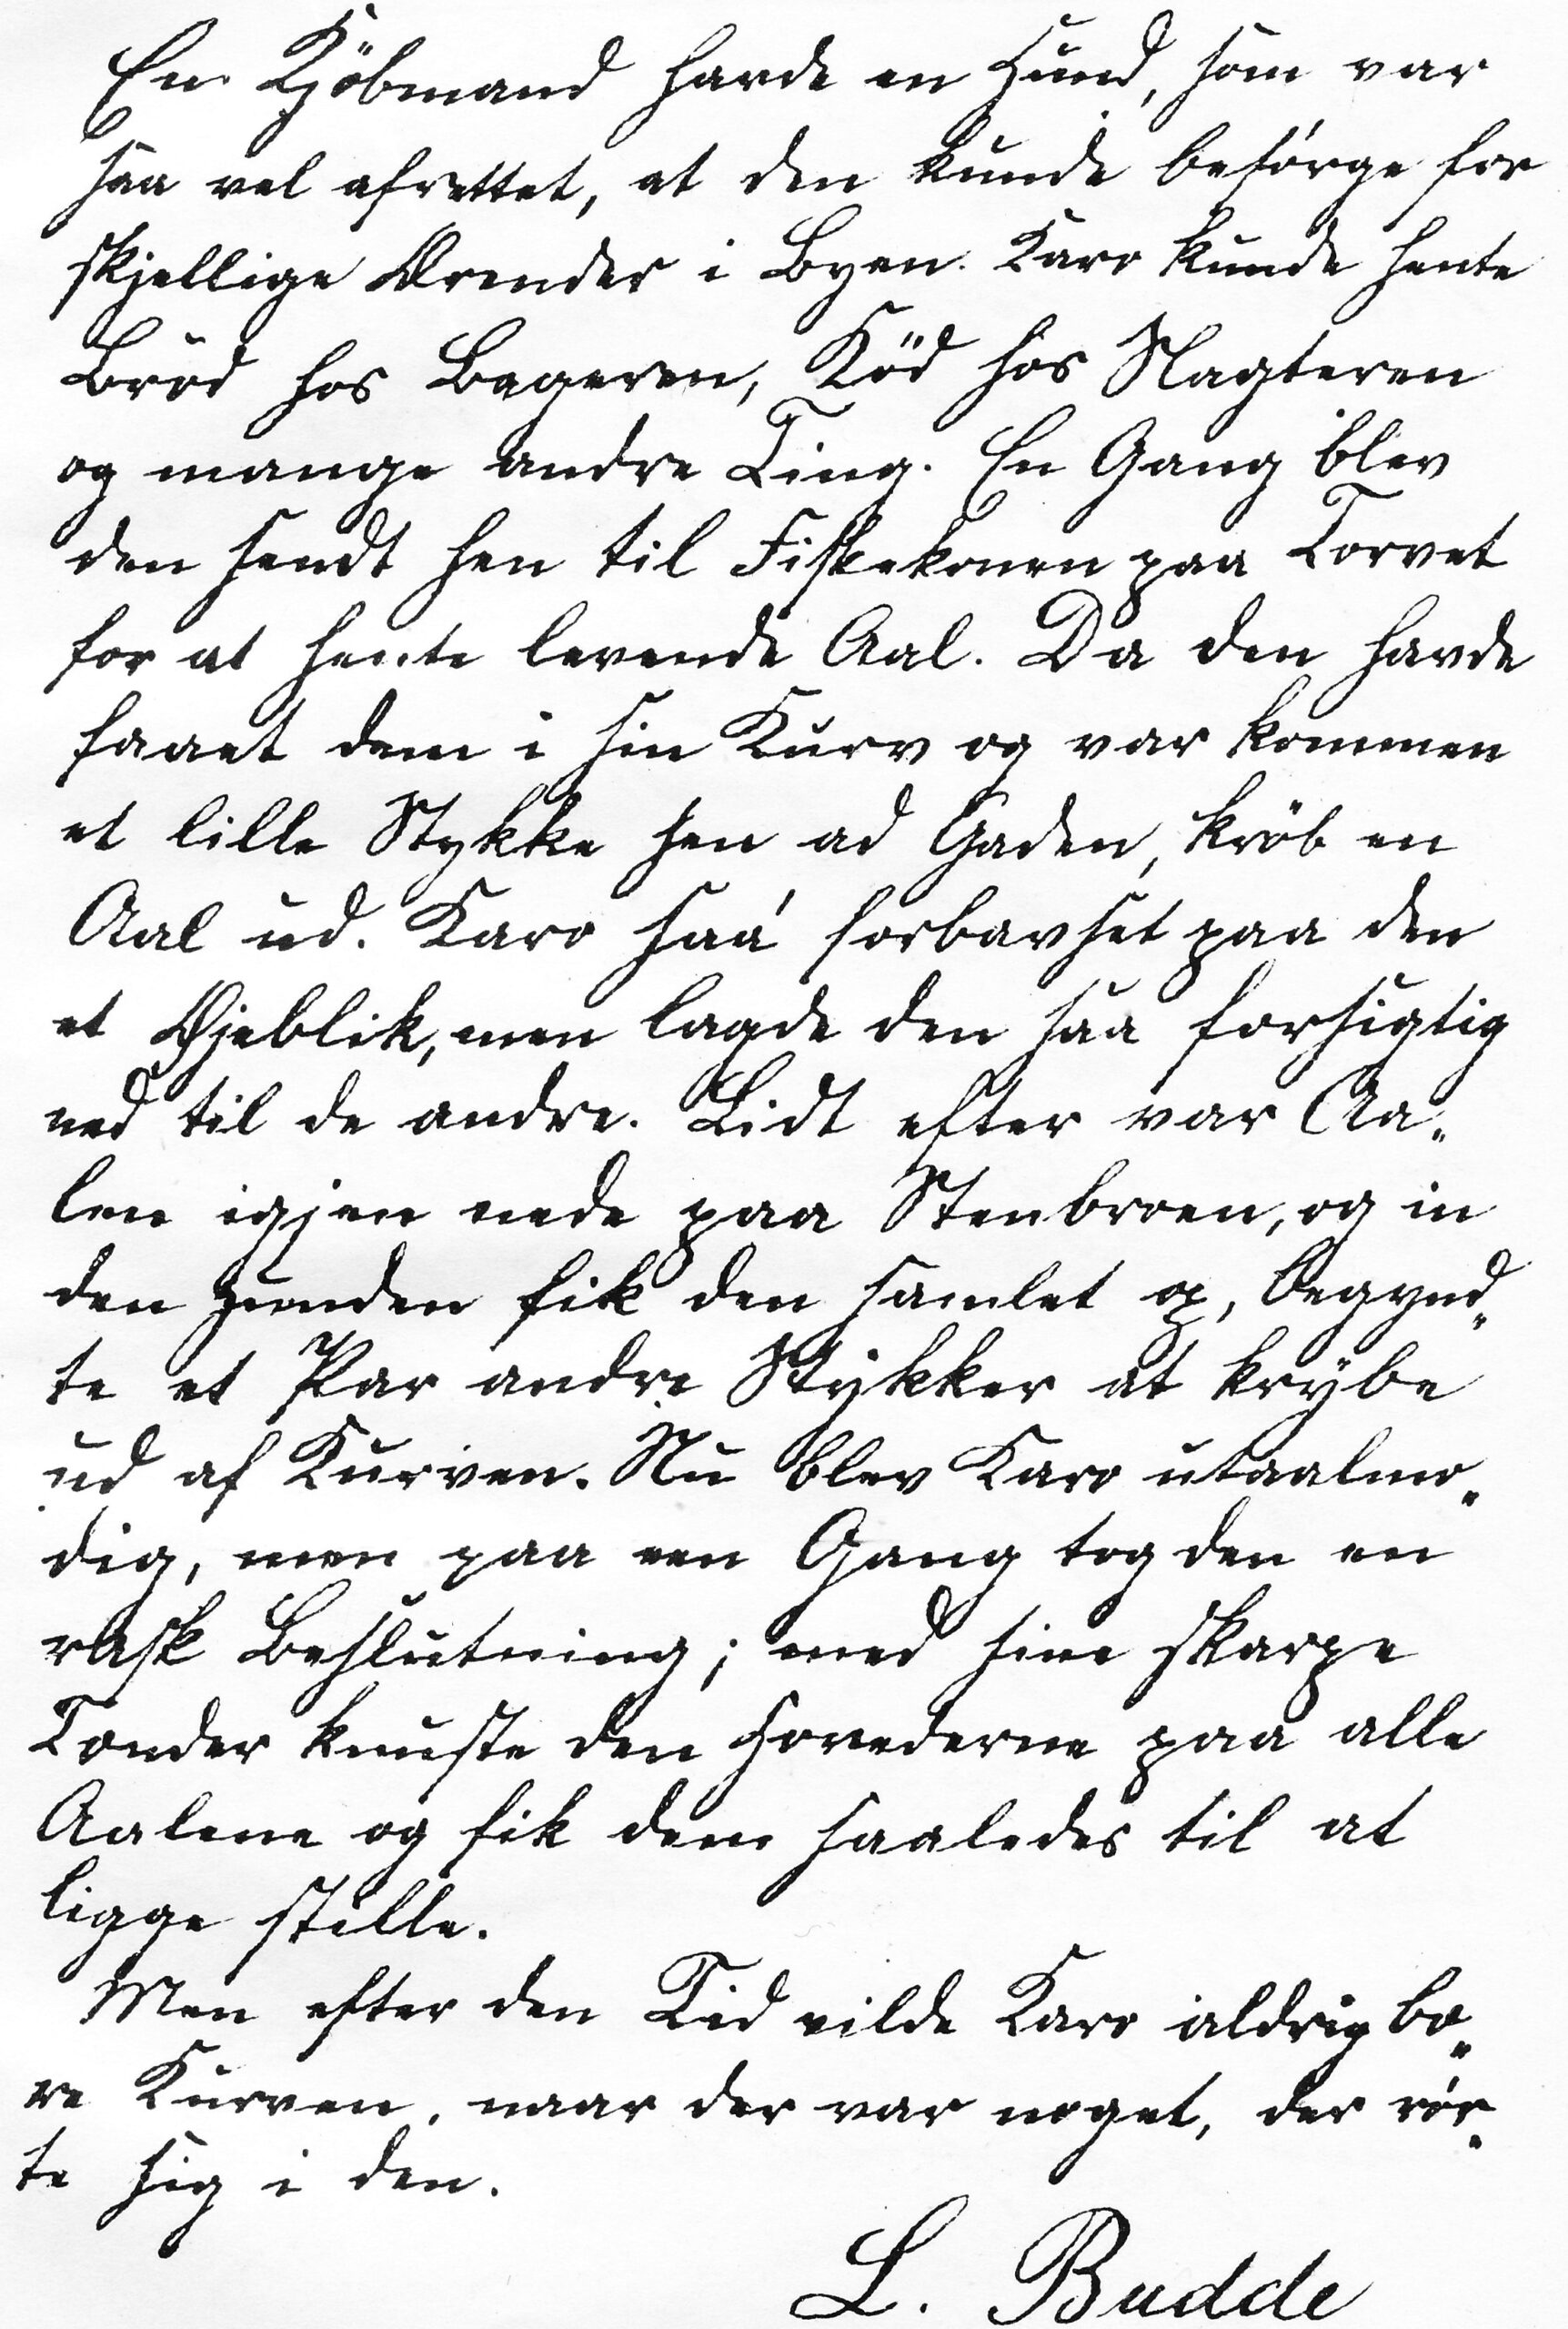 En Kjöbmand havde en Hund, som var
saa vel afrettet, at den kunde besørge for
skjellige Ærender i Byen. Karo kunde hente
Brød hos Bageren, Köd hos Slagteren
og mange andre Ting. En Gang blev
den sendt hen til Fiskekonen paa Torvet
for at hente levende Aal. Da den havde
faaet dem i sin Kurv og var kommen
et lille Stykke hen ad Gaden, kröb en
Aal ud. Karo saá forbavset paa den
et Øjeblik, men lagde den saa forsigtig
ned til de andre. Lidt efter var Aa„
len igjen nede paa Stenbroen, og in
den Hunden fik den samlet op, begynd„
te et Par andre Stykker at krybe
ud af Kurven. Nu blev Karo utaalmo„
dig, men paa een Gang tog den en
rask Beslutning; med sine skarpe
Tænder knuste den Hovederne paa alle
Aalene og fik dem saaledes til at
ligge stille.
Men efter den Tid vilde Karo aldrig bæ„
re Kurven, naar der var noget, der rör„
te sig i den.
L. Budde